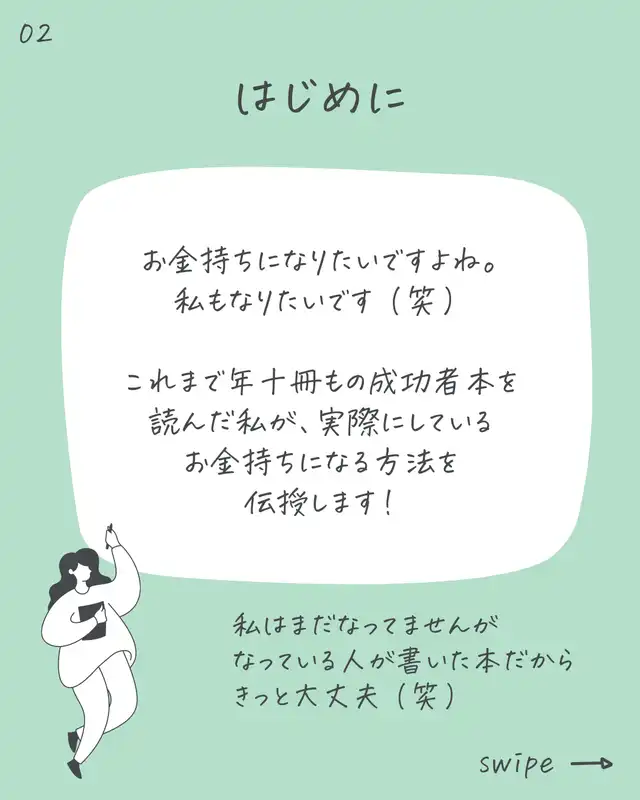 02
はじめに
お金持ちになりたいですよね。
私もなりたいです（笑）
これまで年十冊もの成功者本を
読んだ私が、実際にしている
お金持ちになる方法を
伝授します！
私はまだなってませんが
なっている人が書いた本だから
きっと大丈夫（笑）
swipe